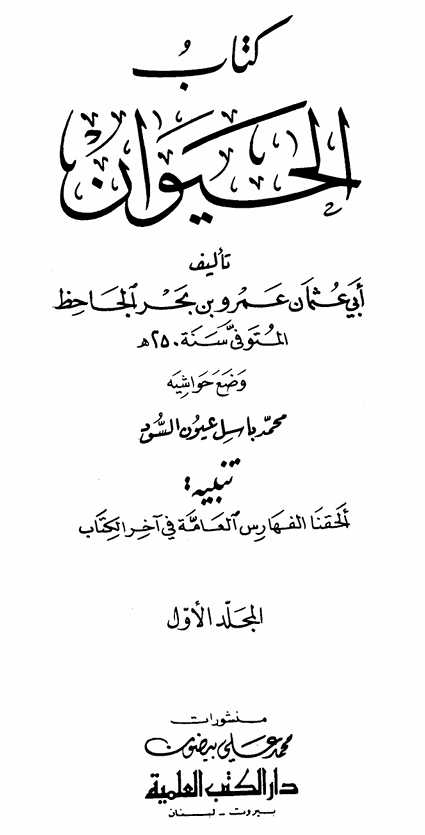 كتاب
الحيوان
تأليف
أبي عثمان عمرو بن بحر الجاحظ
المتوفى سنة ٢٥٠هـ
وضع حواشيه
محمد باسل عيون السود
تنبيه:
ألحقنا الفهارس العامة في آخر الكتاب
المجلد الأول
منشورات
محمد علي بيضون
دار الكتب العلمية
بيروت - لبنان